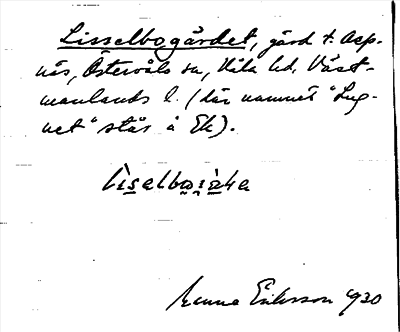 Lisselbogärdet, gärd t. Asp-
näs, Östervåls sn, Våla hd. Väst-
manlands l. (där namnet "Lug-
net" står å Ek).
Manne Eriksson 1930